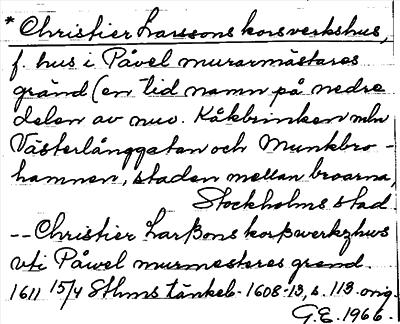 * Christier Larssons korsverkshus,
f. hus i Påvel murarmästares
gränd (en tid namn på nedre
delen av nuv. Kåkbrinken mln
Västerlånggatan och Munkbro-
hamnen, staden mellan broarna,
Stockholms stad
-- Christier Larßons korßwerkzhws
vti Påwel murmesteres grend.
1611 15/4 Sthms tänkeb. 1608-13, s. 113. orig.
G.E. 1966.